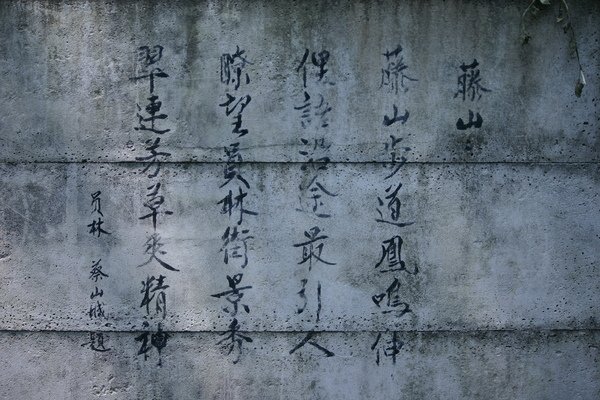 藤山
藤山步道鳳鳴伸
俚語沿途最引人
瞭望員林街景秀
翠連芳草爽精神
員林 蔡山城題